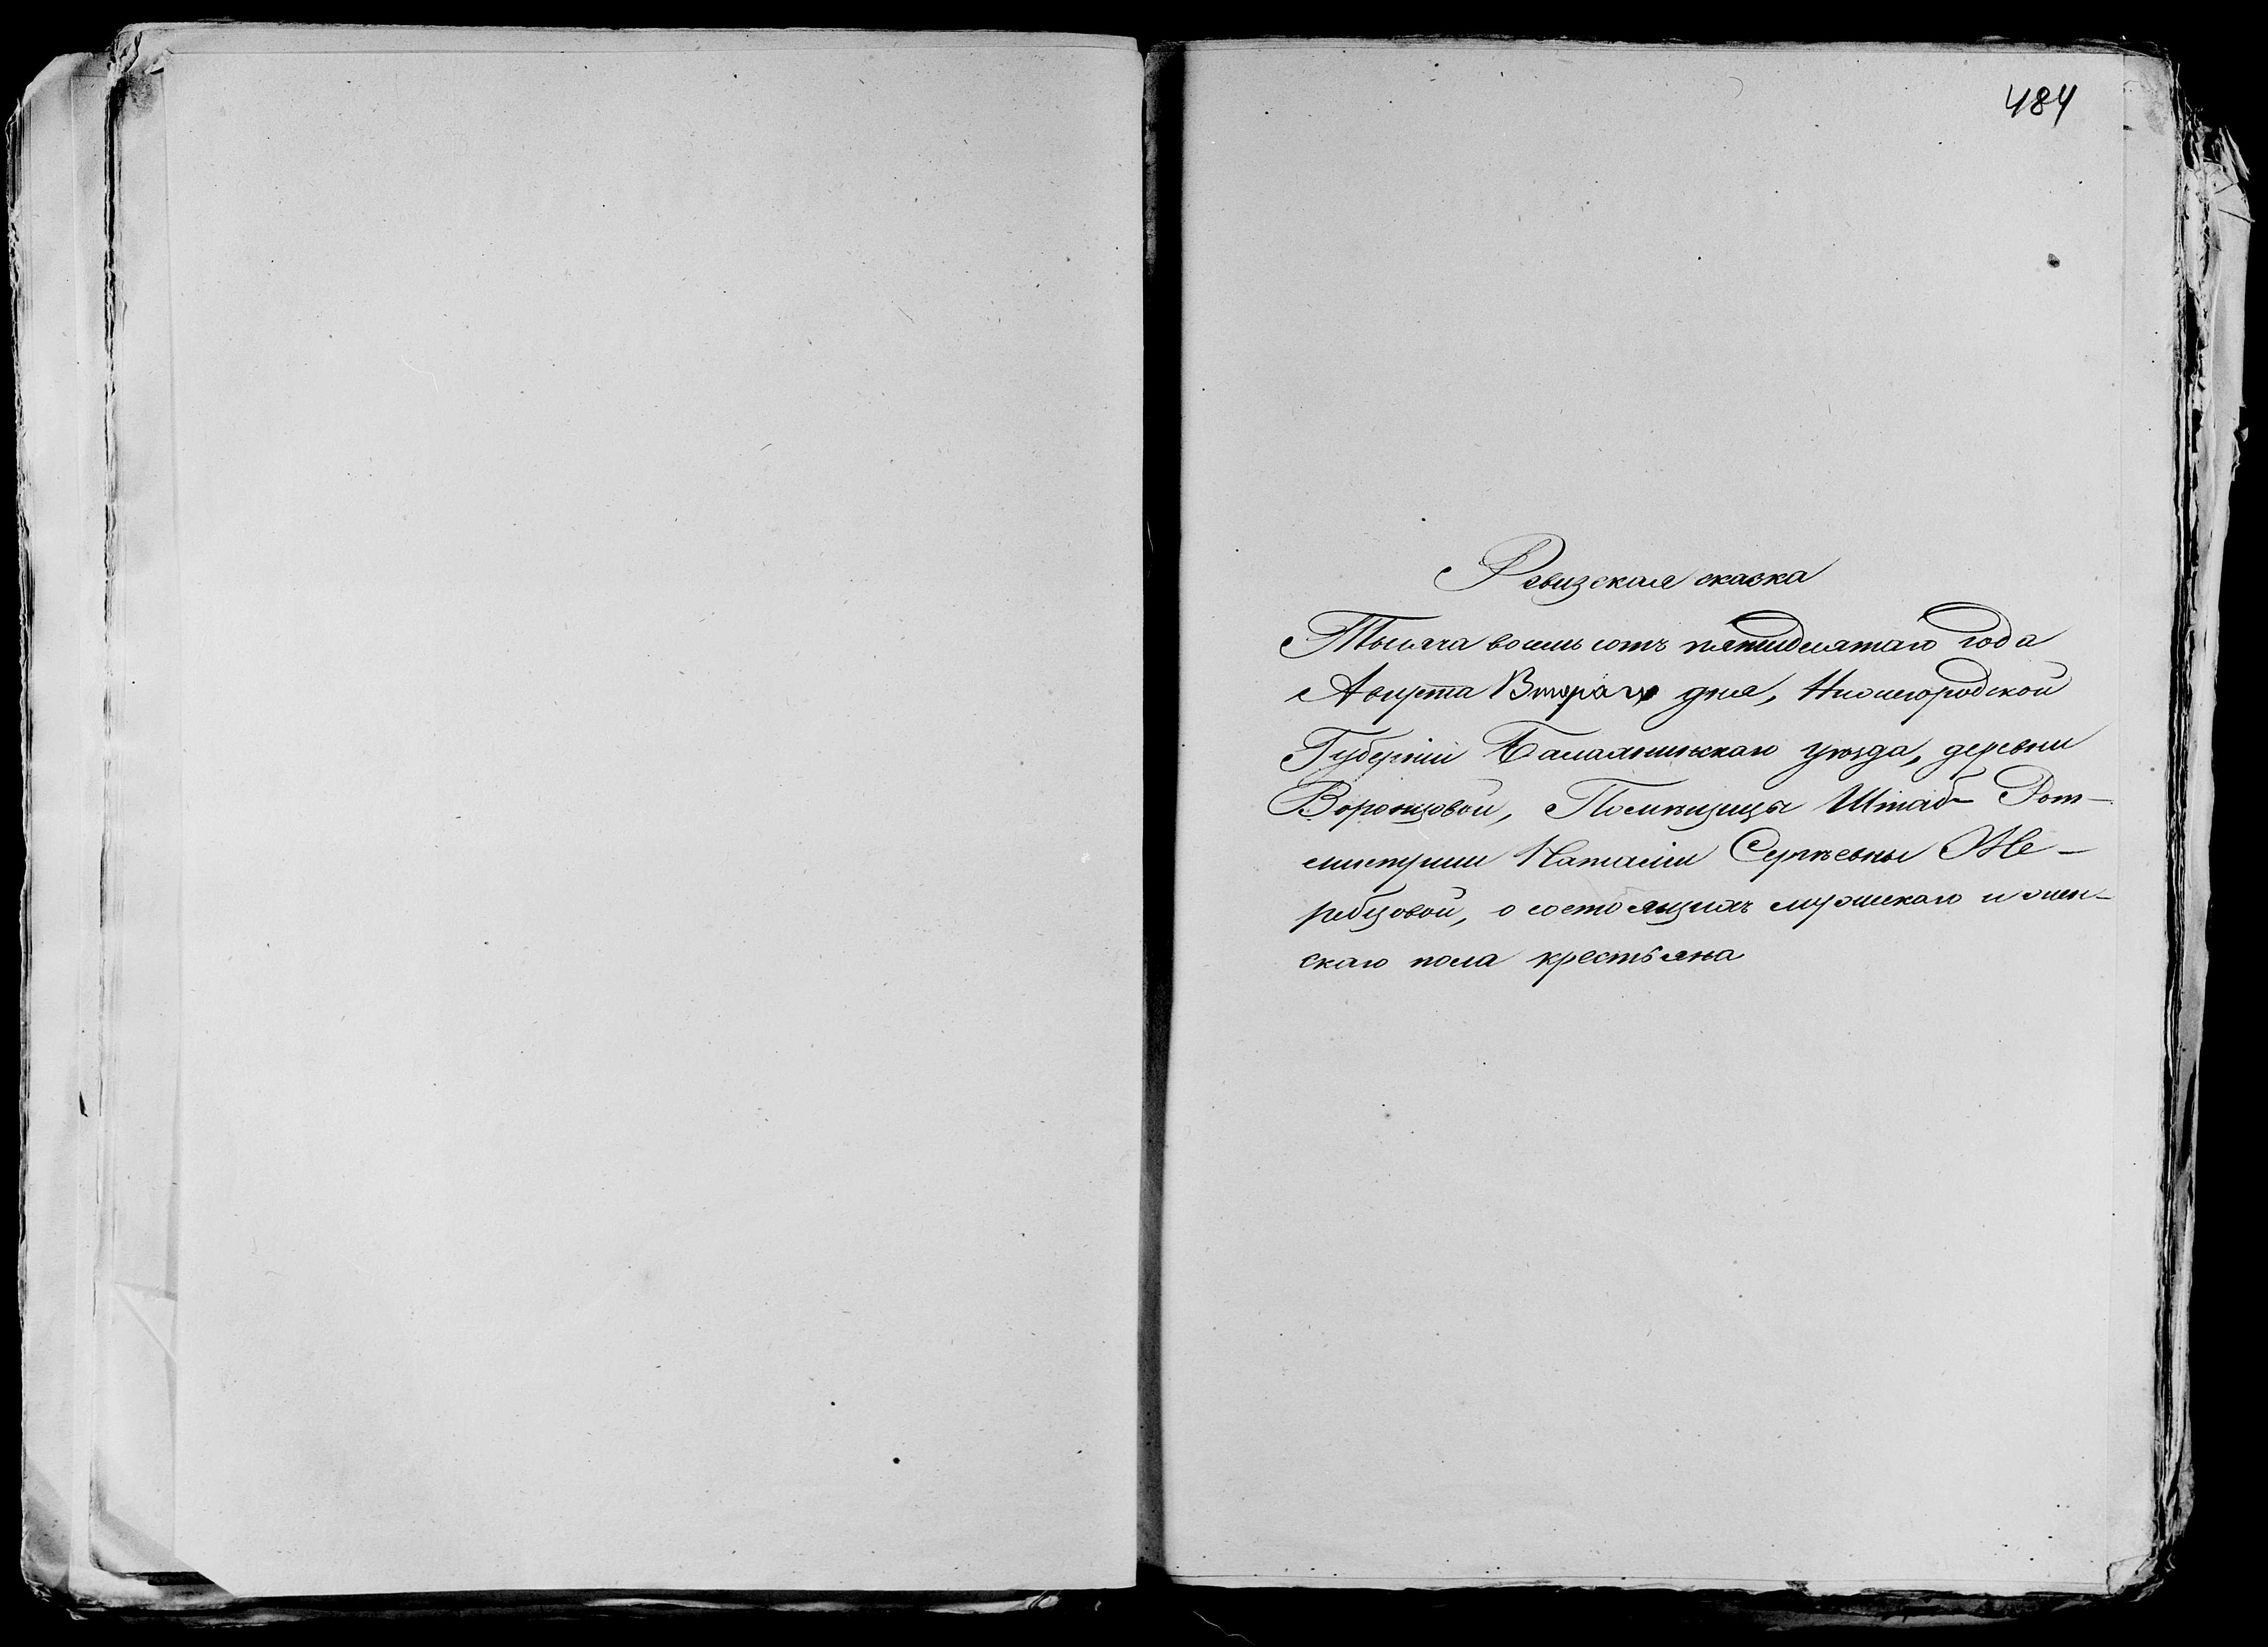 484
Ревизская сказка
Тысяча восемь сотъ пятидесятаго года
Августа Втораго дня, Нижегородской
Губерніи Балахнинскаго уѣзда, деревни
Воронцовой, Помѣщицы Штабъ Рот-
мистрши Наталіи Сергѣевны Же-
ребцовой, о состоящихъ мужескаго и жен-
скаго пола крестьяна